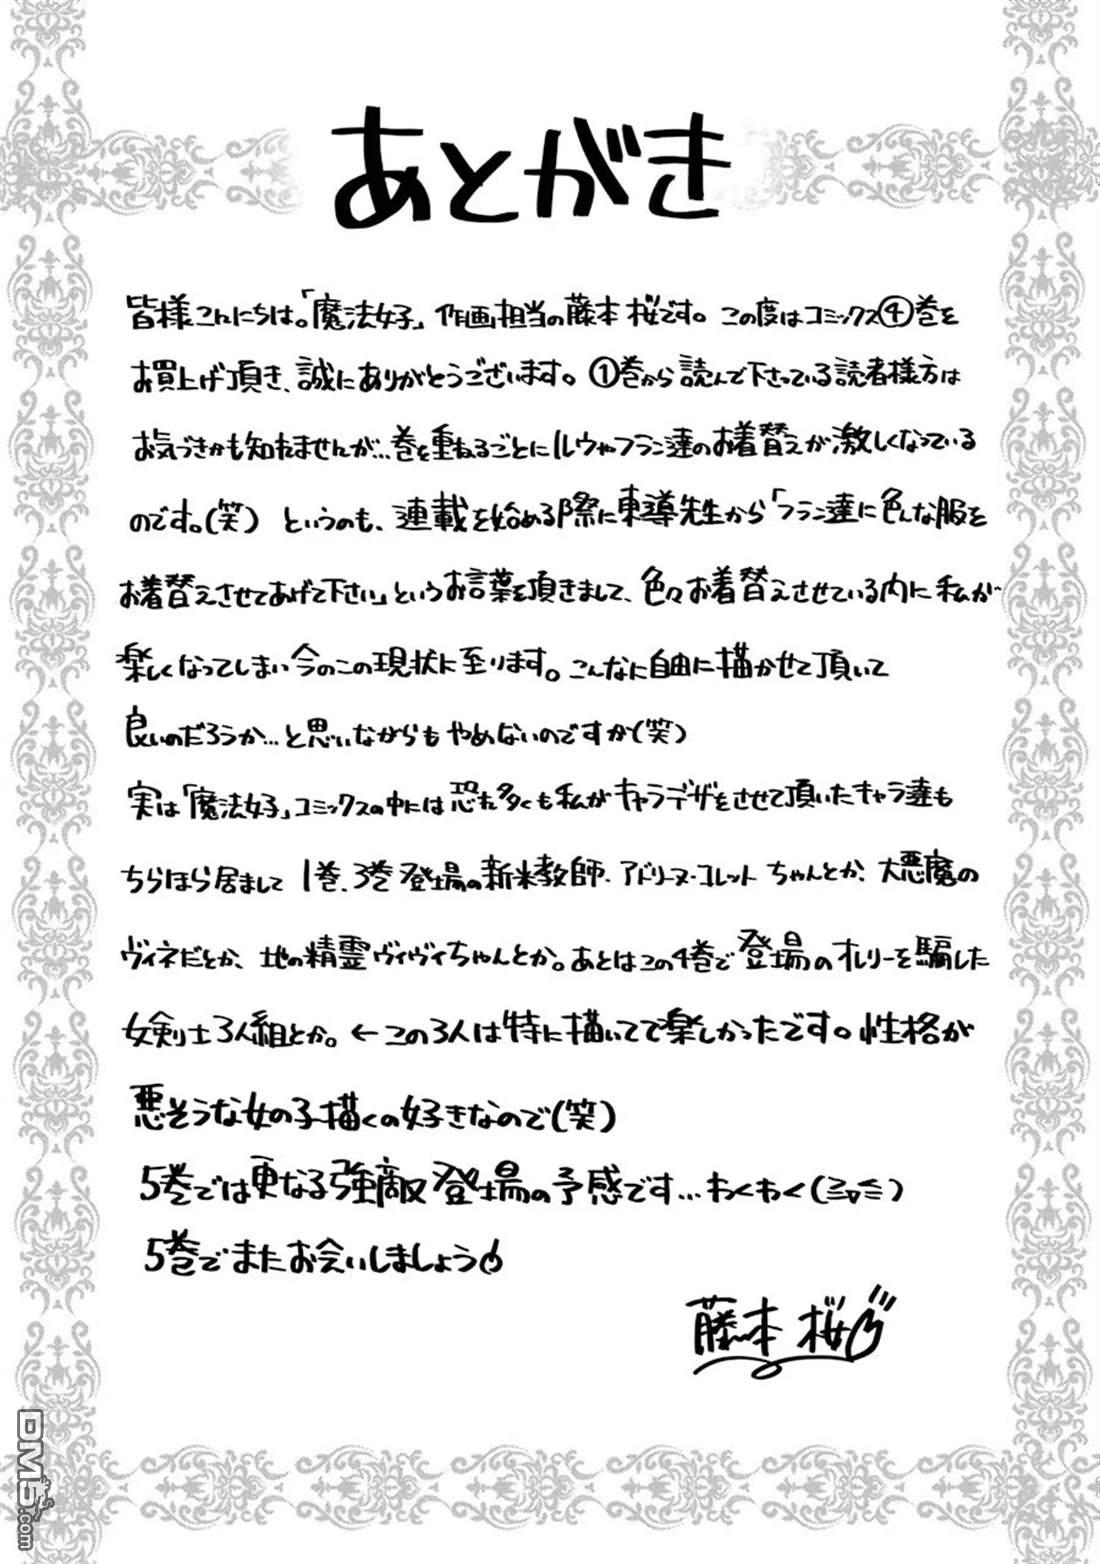 あとがき
皆様こんにちは。「魔法女子」作画担当の藤本桜です。この度はコミックス④巻を
お買上げ頂き、誠にありがとうございます。①巻から読んで下さっている読者様方は
お気づきかも知れませんが…巻を重ねるごとにルウやフラン達のお着替えが激しくなっている
のです。(笑) というのも、連載を始める際に東導先生から「フラン達に色んな服を
お着替えさせてあげて下さい」というお言葉を頂きまして、色々お着替えさせている内に私が
楽しくなってしまい今のこの現状に至ります。こんなに自由に描かせて頂いて
良いのだろうか…と思いながらもやめないのですが(笑)
実は「魔法女子」コミックスの中には恐れ多くも私がキャラデザをさせて頂いたキャラ達も
ちらほら居まして 1巻、3巻登場の新米教師・アドリーヌ・コレットちゃんとか、大悪魔の
ヴィネだとか、地の精霊ヴィヴィちゃんとか。あとはこの4巻で登場のオレリーを騙した
女剣士3人組とか。←この3人は特に描いてて楽しかったです。性格が
悪そうな女の子描くの好きなので(笑)
5巻では更なる強敵登場の予感です…わくわく(≧▽≦)
5巻でまたお会いしましょう
藤本 桜
DM5.com